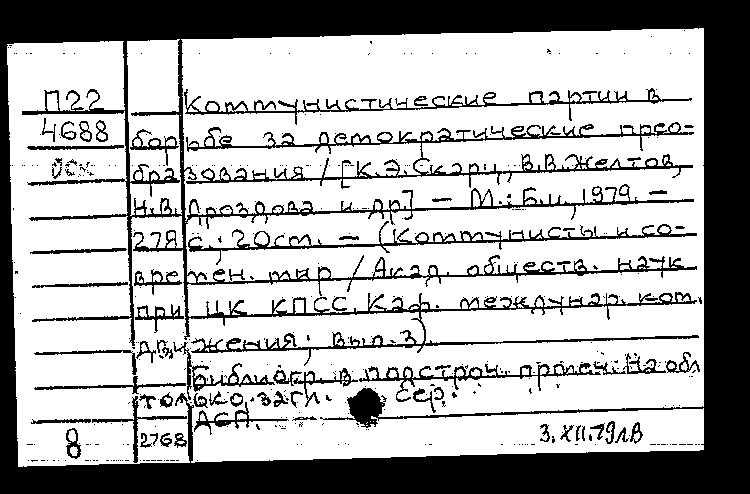 П22 Коммунистические партии в
4688 борьбе за демократические прео-
осн бразования / [К.Э.Скарц, В.В.Желтов,
Н.В.Дроздова и др] — М.: Б.и., 1979. —
278 с.; 20см. — (Коммунисты и со-
времен. мир / Акад. обществ. наук
при ЦК КПСС. Каф. междунар. ком.
движения; вып.3)
Библиогр. в подстроч. примеч. На обл
только загл. сер.
ДСП.
8 2768 3.XII.79